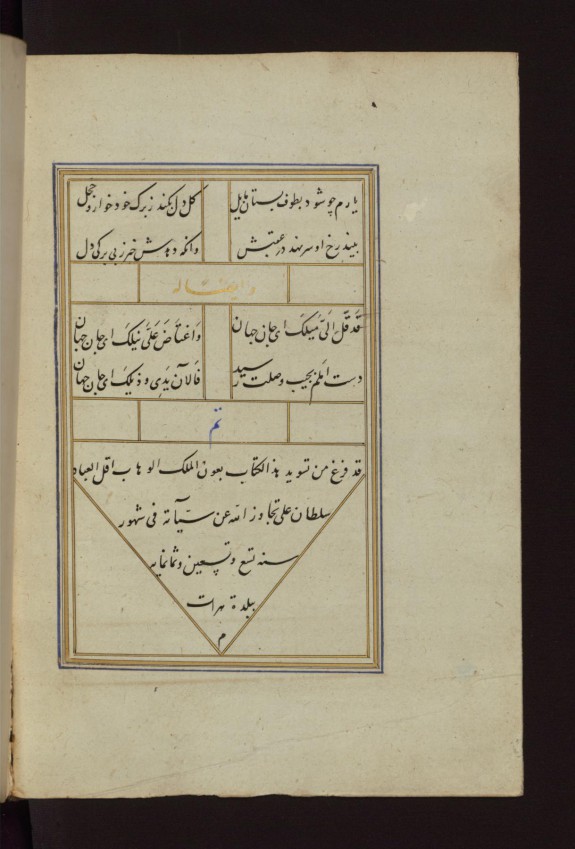 یارم چو شود بطوف بستان مایل گل دل بکند ز برک خود خوار و خجل
بیند رخ او سر نهد در عقبش وانکه دهدش خبر ز بی برکی دل
وایضاً له
قَدْ قَلَّ اِلَیَّ مَیْلَکَ ای جان جهان وَاغْتاضَ عَلَیَّ نیلکَ ای جان جهان
دست املم بجیب وصلت رسید فَالآنَ یَدِی وَ ذیلک ای جان جهان
تم
قد فرغ من تسوید هذا الکتاب بعون الملک الوهاب اقل العباد
سلطان علی تجاوز الله عن سیّآته فی شهور
سنه تسع وتسعین وثمانمایه
ببلدة هرات
م